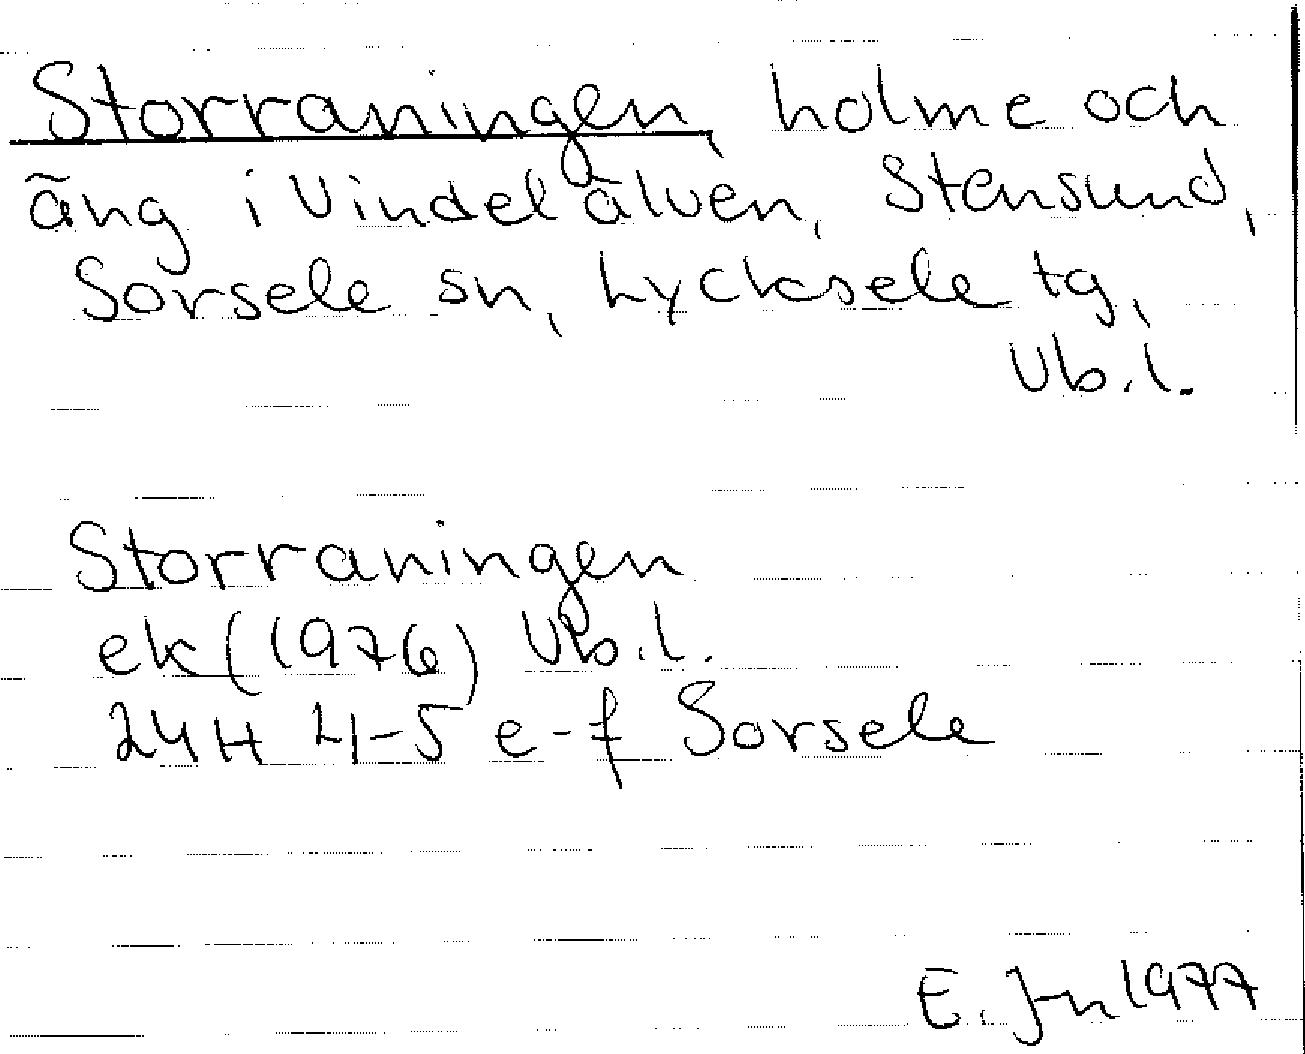 Storraningen, holme och
äng i Vindelälven, Stensund,
Sorsele sn, Lycksele tg,
Vb.l.
Storraningen
ek (1976) Vb.l.
24H 4-5 e-f Sorsele
E. Jn 1977